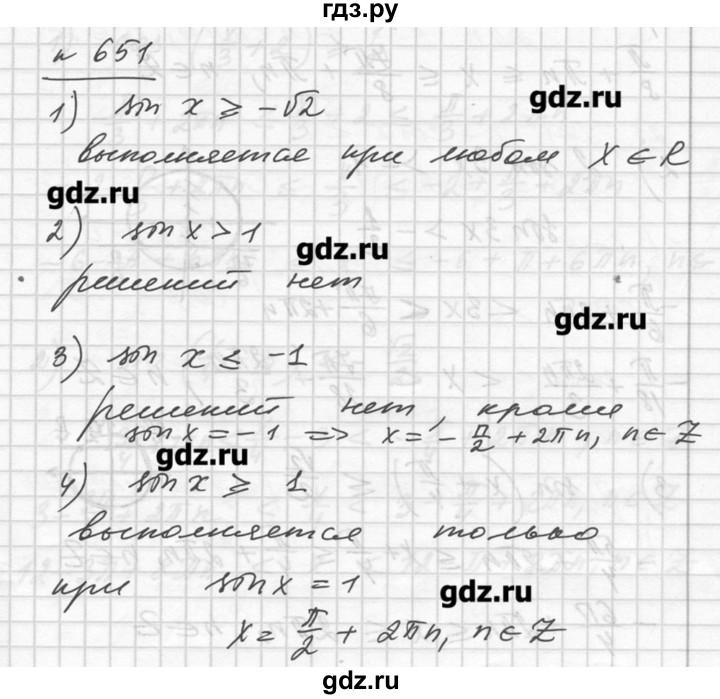 гдз.ру
№ 651
1) sin x ≥ -√2
gdz.ru
выполняется при любом x ∈ R
gdz.ru
2) sin x > 1
gdz.ru
решений нет
gdz.ru
3) sin x ≤ -1
решений нет, кроме
sin x = -1 => x = -π/2 + 2πn, n ∈ Z
gdz.ru
4) sin x ≥ 1
выполняется только
при sin x = 1
gdz.ru
x = π/2 + 2πn, n ∈ Z
gdz.ru